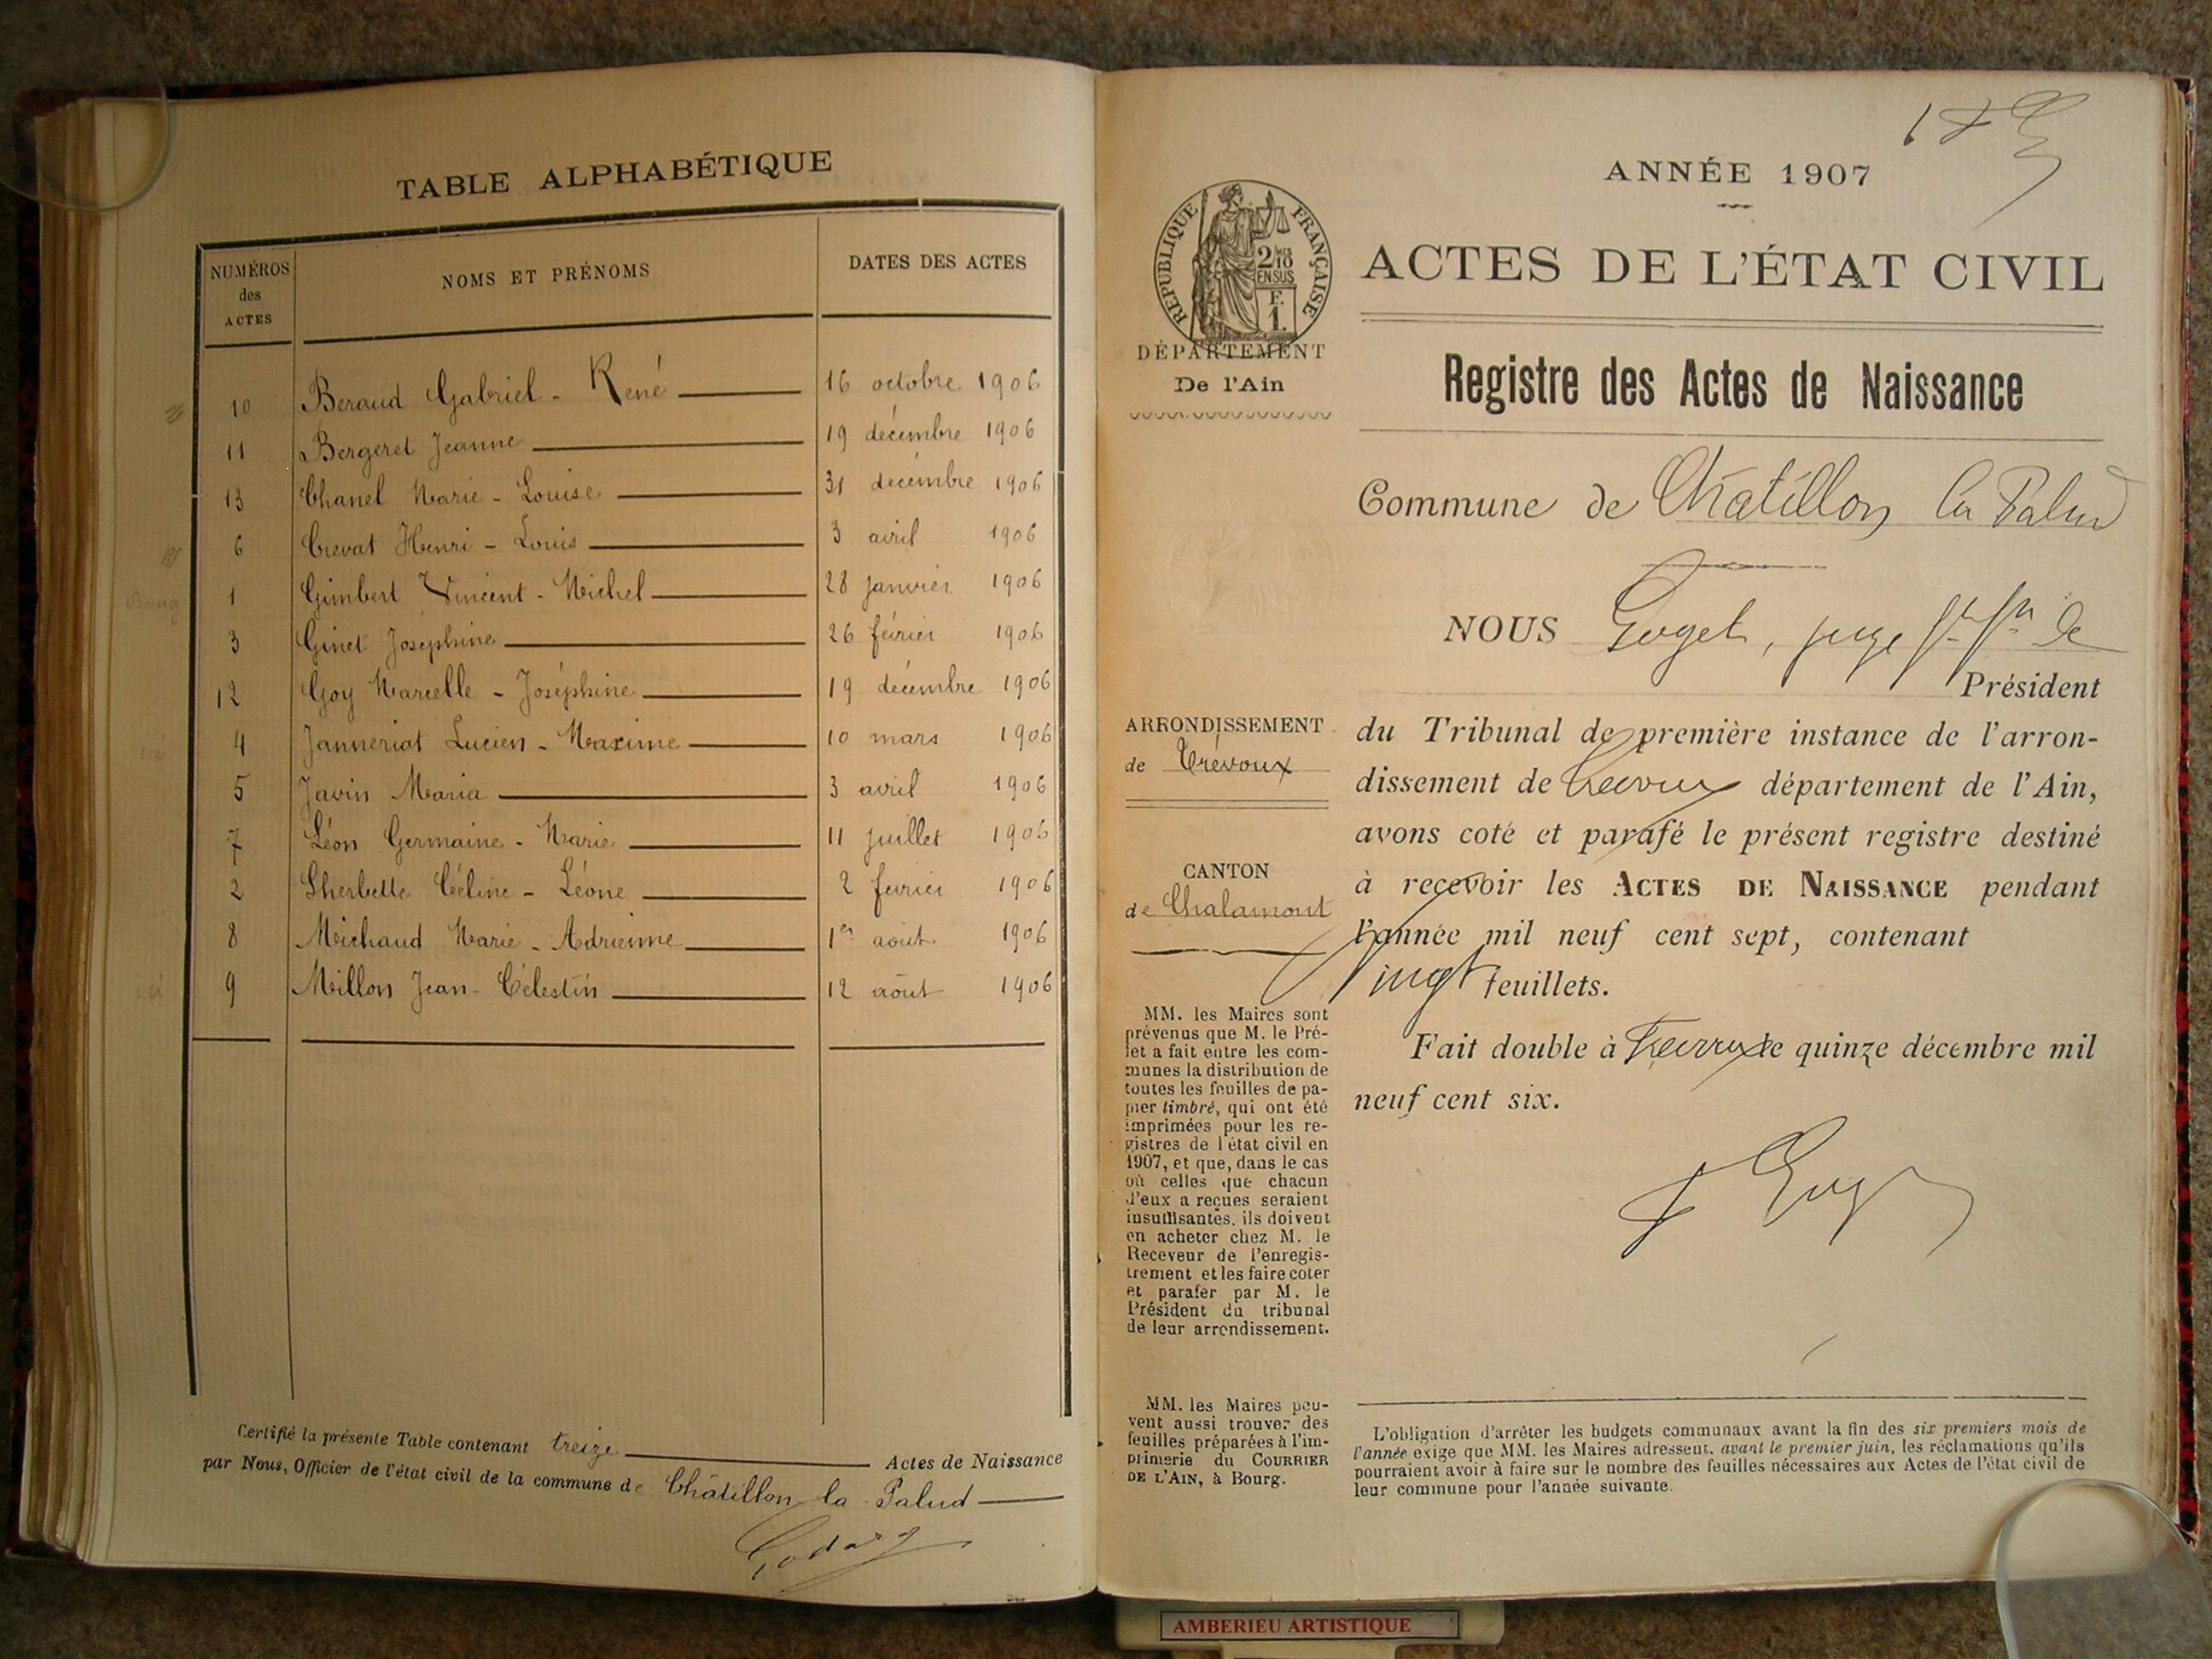 TABLE ALPHABÉTIQUE
NUMÉROS
des
ACTES
NOMS ET PRÉNOMS
DATES DES ACTES
10 Beraud Gabriel - René 16 octobre 1906
11 Bergeret Jeanne 19 décembre 1906
13 Chanel Marie - Louise 31 décembre 1906
6 Crevat Henri - Louis 3 avril 1906
1 Gimbert Vincent - Michel 28 janvier 1906
3 Ginet Joséphine 26 février 1906
12 Goy Marcelle - Joséphine 19 décembre 1906
4 Janneriat Lucien - Maxime 10 mars 1906
5 Javin Maria 3 avril 1906
7 Léon Germaine - Marie 11 juillet 1906
2 Lherbette Céline - Léone 2 février 1906
8 Michaud Marie - Adrienne 1er août 1906
9 Millon Jean - Célestin 12 août 1906
Certifié la présente Table contenant treize Actes de Naissance
par Nous, Officier de l'état civil de la commune de Châtillon la Palud
Godard
ANNÉE 1907
RÉPUBLIQUE FRANÇAISE
2/10
EN SUS
F.
1.
DÉPARTEMENT
De l'Ain
ACTES DE L'ÉTAT CIVIL
Registre des Actes de Naissance
Commune de Châtillon la Palud
NOUS Goget, juge
Président
ARRONDISSEMENT
de Trévoux
CANTON
de Chalamont
du Tribunal de première instance de l'arron-
dissement de Trévoux département de l'Ain,
avons coté et parafé le présent registre destiné
à recevoir les ACTES DE NAISSANCE pendant
l'année mil neuf cent sept, contenant
Vingt feuillets.
Fait double à Trévoux le quinze décembre mil
neuf cent six.
MM. les Maires sont
prévenus que M. le Pré-
fet a fait entre les com-
munes la distribution de
toutes les feuilles de pa-
pier timbré, qui ont été
imprimées pour les re-
gistres de l'état civil en
1907, et que, dans le cas
où celles que chacun
d'eux a reçues seraient
insuffisantes, ils doivent
en acheter chez M. le
Receveur de l'enregis-
trement et les faire coter
et parafer par M. le
Président du tribunal
de leur arrondissement.
MM. les Maires peu-
vent aussi trouver des
feuilles préparées à l'im-
primerie du COURRIER
DE L'AIN, à Bourg.
L'obligation d'arrêter les budgets communaux avant la fin des six premiers mois de
l'année exige que MM. les Maires adressent, avant le premier juin, les réclamations qu'ils
pourraient avoir à faire sur le nombre des feuilles nécessaires aux Actes de l'état civil de
leur commune pour l'année suivante.
AMBERIEU ARTISTIQUE